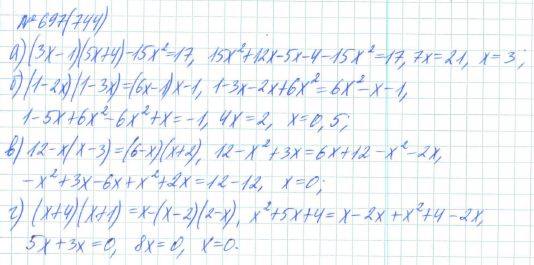 №697(744)
а) (3x-1)(5x+4)-15x²=17, 15x²+12x-5x-4-15x²=17, 7x=21, x=3;
б) (1-2x)(1-3x)=(6x-1)x-1, 1-3x-2x+6x²=6x²-x-1,
1-5x+6x²-6x²+x=-1, 4x=2, x=0,5;
в) 12-x(x-3)=(6-x)(x+2), 12-x²+3x=6x+12-x²-2x,
-x²+3x-6x+x²+2x=12-12, x=0;
г) (x+4)(x+1)=x-(x-2)(2-x), x²+5x+4=x-2x+x²+4-2x,
5x+3x=0, 8x=0, x=0.